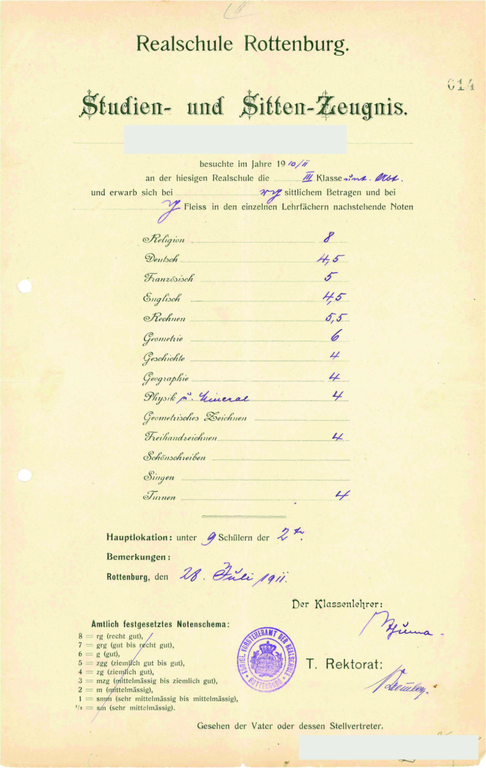 614
Realschule Rottenburg.
Studien- und Sitten-Zeugnis.
besuchte im Jahre 1910/11
an der hiesigen Realschule die III Klasse unt. Abt.
und erwarb sich bei rg sittlichem Betragen und bei
g Fleiss in den einzelnen Lehrfächern nachstehende Noten
Religion 8
Deutsch 4,5
Französisch 5
Englisch 4,5
Rechnen 5,5
Geometrie 6
Geschichte 4
Geographie 4
Physik u. Mineral 4
Geometrisches Zeichnen
Freihandzeichnen 4
Schönschreiben
Singen
Turnen 4
Hauptlokation: unter 9 Schülern der 2te.
Bemerkungen:
Rottenburg, den 28. Juli 1911
Der Klassenlehrer:
Amtlich festgesetztes Notenschema:
8 = rg (recht gut),
7 = grg (gut bis recht gut),
6 = g (gut),
5 = zgg (ziemlich gut bis gut),
4 = zg (ziemlich gut),
3 = mzg (mittelmässig bis ziemlich gut),
2 = m (mittelmässig),
1 = smm (sehr mittelmässig bis mittelmässig),
½ = sm (sehr mittelmässig).
KÖNIGL. VORSTEHERAMT DER REALSCHULE
ROTTENBURG
T. Rektorat:
Gesehen der Vater oder dessen Stellvertreter.